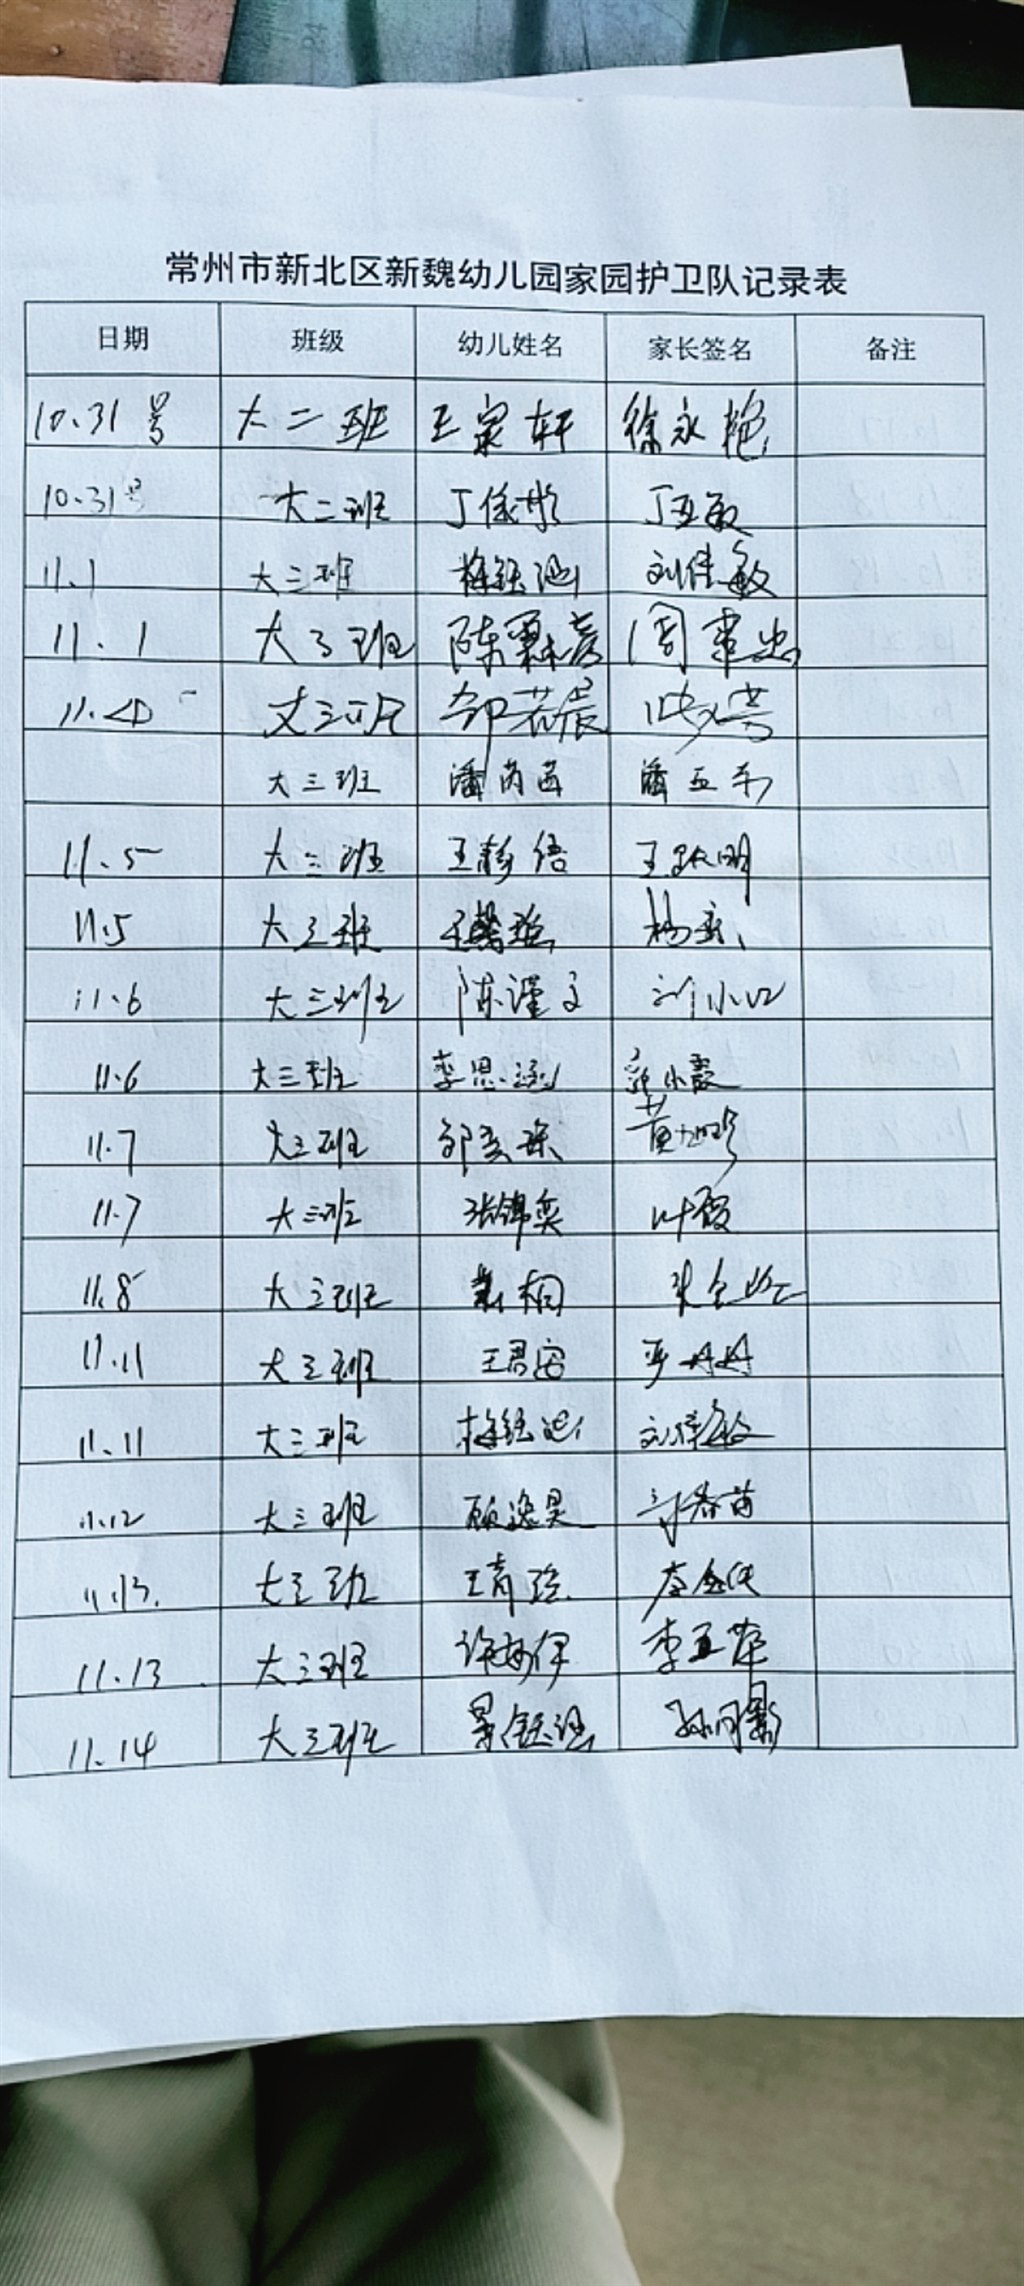 常州市新北区新魏幼儿园家园护卫队记录表
日期 班级 幼儿姓名 家长签名 备注
10.31号 大二班 王泉轩 徐永艳
10.31号 大二班 丁依彤 丁亚敏
11.1 大三班 梅钰涵 刘佳敏
11.1 大3班 陈霖彦 周聿忠
11.4 大三班 邹若晨
大三班 潘芮茜 潘亚东
11.5 大三班 王静倍 王跃明
11.5 大三班 杨
11.6 大三班 陈谨文 刘小江
11.6 大三班 李思远 郭小霞
11.7 大三班 邹
11.7 大三班 张锦奕 叶霞
11.8 大三班
11.11 大三班 王君安 严丹丹
11.11 大三班 梅钰涵 刘佳敏
11.12 大三班 顾逸昊 春苗
11.13. 大三班 王
11.13 大三班 许 伊 李亚萍
11.14 大三班 景钰涵 孙月影